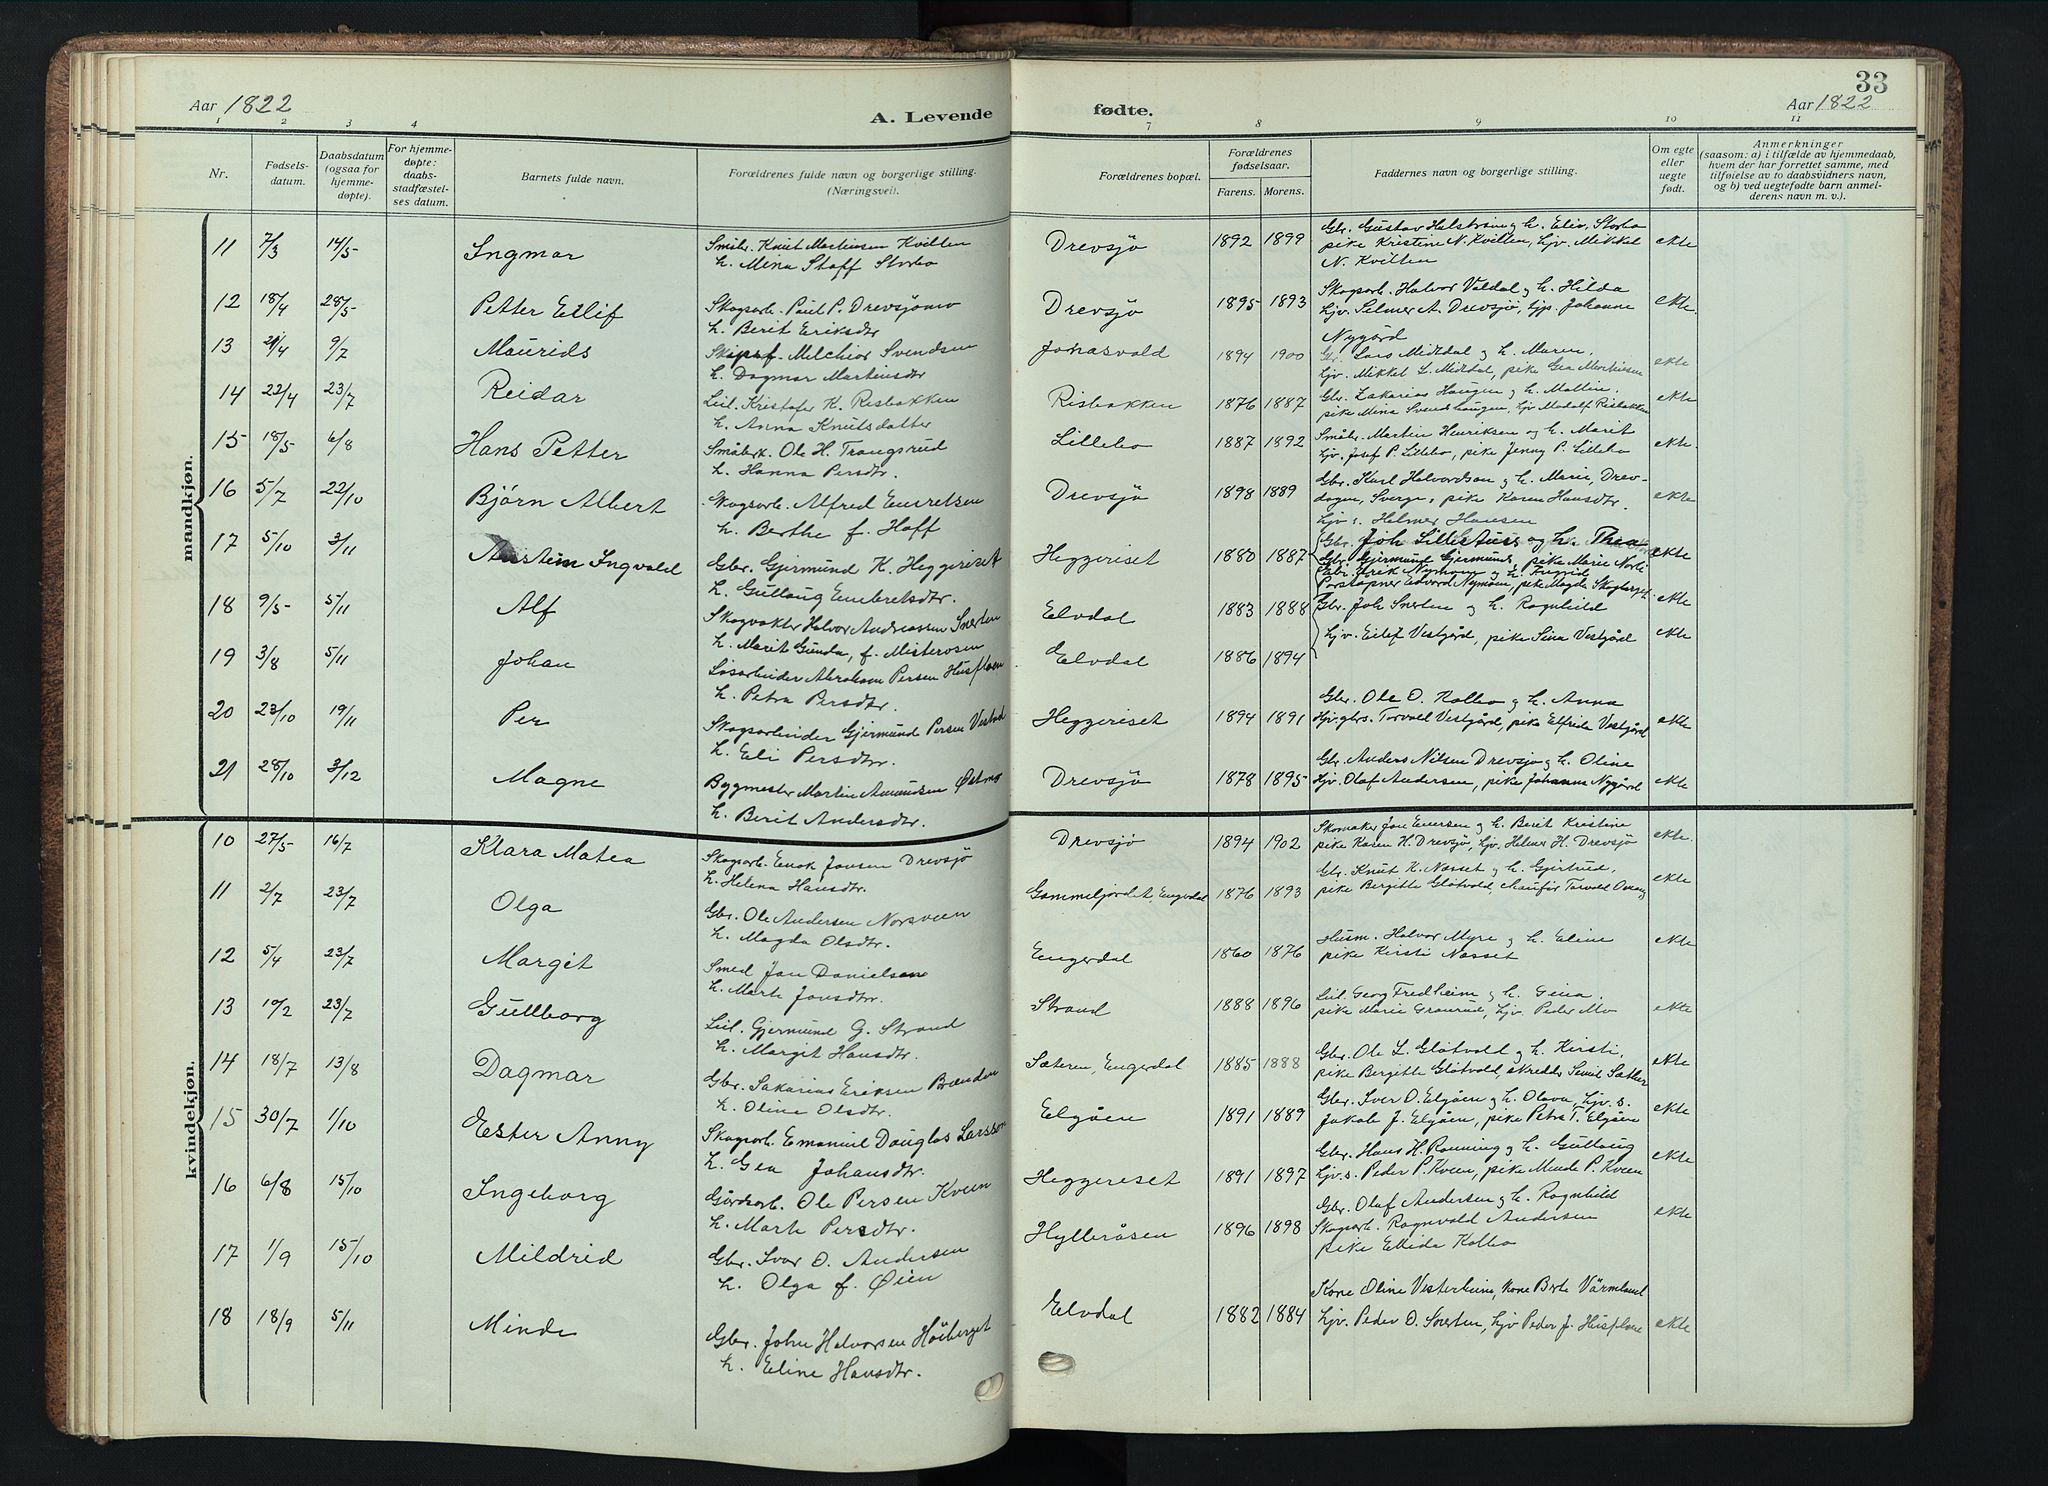 33
Aar 1822
A. Levende
fødte.
Aar 1822
1 2 3 4 7 8 9 10 11
Nr.
Fødsels-
datum.
Daabsdatum
(ogsaa for
hjemme-
døpte).
For hjemme-
døpte:
daabs-
stadfæstel-
ses datum.
Barnets fulde navn.
Forældrenes fulde navn og borgerlige stilling.
(Næringsvei).
Forældrenes bopæl.
Forældrenes
fødselsaar.
Farens. Morens.
Faddernes navn og borgerlige stilling.
Om egte
eller
uegte
født.
Anmerkninger
(saasom: a) i tilfælde av hjemmedaab,
hvem der har forrettet samme, med
tilføielse av to daabsvidners navn,
og b) ved uegtefødte barn anmel-
derens navn m. v.).
mandkjøn.
11 7/3 14/5 Ingmar
Småbr. Knut Martinsen Kvilten
h. Mina Staff Storbo
Drevsjö 1892 1899
Gbr. Gustav Helstrøm og h. Eliv, Storbo
pike Kristine N. Kvilten, Ljv. Mikkel
N. Kvilten
ekte
12 18/4 28/5 Petter Eilif
Skogsarb. Paul P. Drevsjömo
h. Berit Eriksdtr
Drevsjö 1895 1893
Skogsarb. Halvor Valdal og h. Hilda
Ljv. Selmer A. Drevsjö, Ljp. Johanne
Nygård
ekte.
13 21/4 9/7 Maurids
Milchior Svendsen
h. Dagmar Martinsdtr
Johasvold 1894 1900
Gbr. Lars Midtdal og h. Maren,
Ljv. Mikkel L. Midtdal, pike Gea Martinsen
ekte
14 22/4 23/7 Reidar
Leil. Kristofer K. Risbakken
h. Anna Knutsdatter
Risbakken 1876 1887
Gbr. Zakarias Haugen og h. Mallin,
pike Mina Svendshaugen, Ljv Modalf Risbakken
ekte
15 18/5 6/8 Hans Petter
Småbrk. Ole H. Trangsrud
h. Hanna Persdtr.
Lillebo 1887 1892
Småbr. Martin Henriksen og h. Marit
Ljv. Josef P. Lillebo, pike Jenny P. Lillebo
ekte.
16 5/7 22/10 Bjørn Albert
Skogsarb. Alfred Emretsen
h. Berthe f. Hoff
Drevsjö 1898 1889
Gbr. Karl Halvordson og h. Marie, Drev-
dagen, Sverge, pike Karen Hansdtr.
Ljv s. Helmer Hansen
ekte
17 5/10 3/11 Austein Ingvald
Gbr. Gjermund K. Heggeriset
h. Gullaug Embretsdtr.
Heggeriset 1880 1887
Gbr. Joh Lillestuss og h. Thea
Gbr. Gjermund Gjermunds, pike Marie Norli
Gbr. Erik Nymoen og h. Ingrid
Poståpner Edvard Nymoen, pike Magda Skogtorget.
ekte
18 9/5 5/11 Alf
Skogvokter Halvor Andreassen Snerten
h. Marit Gunda, f. Misterosen
Elvdal 1883 1888
Gbr. Joh Snerten og h. Ragnhild
ekte
19 3/8 5/11 Johan
Løsarbeider Abraham Persen Husfloen
h. Petra Persdtr.
Elvdal 1886 1894
Ljv. Eilif Vestgård, pike Sina Vestgård
ekte
20 23/10 19/11 Per
Skogsarbeider Gjermund Persen Vestvold
h. Eli Persdtr.
Heggeriset 1894 1891
Gbr. Ole O. Kolbo og h. Anna
Ljv. gbrs. Torvald Vestgård, pike Elfrida Vestgård
ekte
21 28/10 3/12 Magne
Bygmester Martin Amundsen Østmo
h. Berit Andersdtr.
Drevsjö 1878 1895
Gbr. Anders Nilsen Drevsjö og h. Oline
Ljv. Olaf Andersen, pike Johanna Nygård
ekte
kvindekjøn.
10 27/5 16/7 Klara Matea
Skogsarb. Enok Jonsen Drevsjö
h. Helena Hansdtr.
Drevsjö 1894 1902
Skomaker Jon Enersen og h. Berit Kristine
pike Karen H. Drevsjö, Ljv. Helmer H. Drevsjö
ekte.
11 2/7 23/7 Olga
Gbr. Ole Andersen Norsveen
h. Magda Olsdtr.
Gammeljordet, Engerdal 1876 1893
Gbr. Knut K. Nasset og h. Gjertrud,
pike Bergitte Gløtvold, chauffør Torvald
ekte
12 5/4 23/7 Margit
Smed Jon Danielsen
h. Marte Jonsdtr.
Engerdal 1860 1876
Husm. Halvor Myre og h. Eline
pike Kirsti Nasset
ekte
13 19/2 23/7 Gullborg
Leil. Gjermund G. Strand
h. Margit Hansdtr.
Strand 1888 1896
Leil. Georg Fredheim og h. Gina,
pike Marie Granrud, Ljv. Peder Mo
ekte
14 18/7 13/8 Dagmar
Gbr. Sakarias Eriksen Brænden
h. Oline Olsdtr.
Sæteren, Engerdal 1885 1888
Gbr. Ole L. Gløtvold og h. Kirsti,
pike Bergitte Gløtvold, skredder Semil Sæther
ekte
15 30/7 1/10 Ester Anny
Skogsarb. Emanuel Douglas Larsson
h. Gea Johansdtr.
Elgåen 1891 1889
Gbr. Iver O. Elgåen og h. Olava, Ljv. s.
Jakob J. Elgåen, pike Petra T. Elgåen
ekte
16 6/8 15/10 Ingeborg
Gårdsarb. Ole Persen Kveen
h. Marte Persdtr.
Heggeriset 1891 1897
Gbr. Hans H. Rønning og h. Gullaug
Ljv. s. Peder P. Kveen, pike Minde P. Kveen
ekte
17 1/9 15/10 Mildrid
Gbr. Ivar O. Andersen
h. Olga f. Øien
Hylleråsen 1896 1898
Gbr. Olaf Andersen og h. Ragnhild
Skogsarb. Ragnvald Andersen
pike Ellida Kolbo
ekte
18 18/9 5/11 Minde
Gbr. John Halvorsen Höiberget
h. Eline Hansdtr.
Elvdal 1882 1884
Kone Oline Vesterheim, kone Berte Värmland
Ljv. Peder O. Snerten, Ljv Peder J. Husfloen
ekte